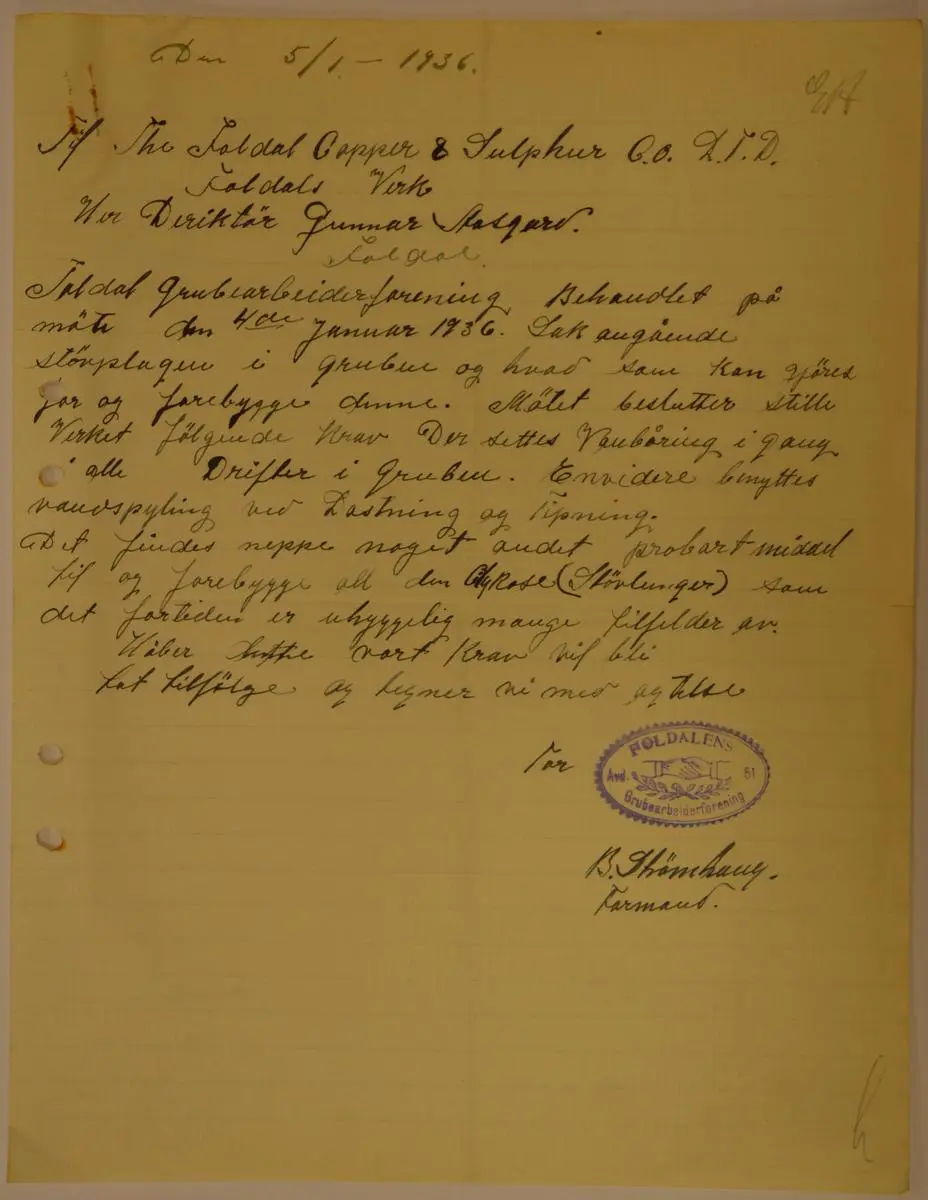 Den 5/1 - 1936.
EA
Til The Foldal Copper & Sulphur C.O. L.T.D.
Foldals Verk
Her Deriktör Gunnar Aasgard.
Foldal.
Foldal Grubearbeiderforening Behandlet på
möte den 4de Januar 1936. Sak angående
stövplagen i gruben og hvad som kan gjöres
for og forebygge denne. Mötet beslutter stille
Verket fölgende Krav Der settes Vanboring i gang
i alle Drifter i Gruben. Envidere benyttes
vandspyling ved Lastning og Tipning.
Det findes neppe noget andet probart middel
til og forebygge all den (Stövlunger) som
det fortiden er uhyggelig mange tilfelder av.
Håber dette vort Krav vil bli
tat tilfölge og tegner vi med agtelse
For
FOLDALENS
Avd. 51
Grubearbeiderforening
B. Strömhaug.
Formand.